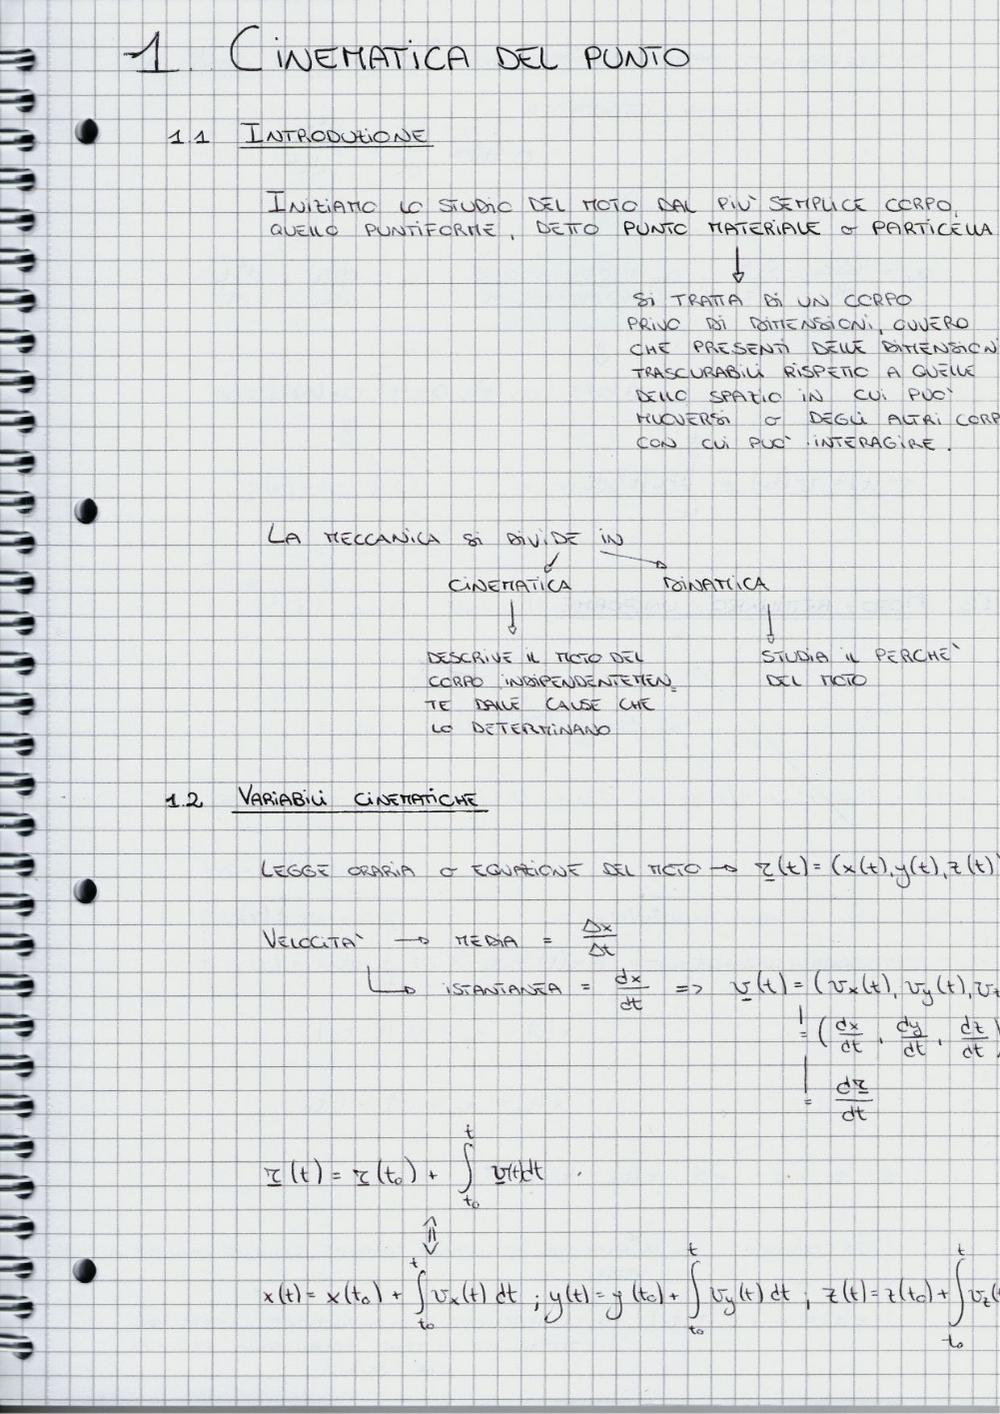 1. CINEMATICA DEL PUNTO
1.1 INTRODUZIONE
INIZIAMO LO STUDIO DEL MOTO DAL PIU' SEMPLICE CORPO,
QUELLO PUNTIFORME, DETTO PUNTO MATERIALE O PARTICELLA
↓
SI TRATTA DI UN CORPO
PRIVO DI DIMENSIONI, OVVERO
CHE PRESENTI DELLE DIMENSION
TRASCURABILI RISPETTO A QUELLE
DELLO SPAZIO IN CUI PUO'
MUOVERSI O DEGLI ALTRI CORP
CON CUI PUO' INTERAGIRE.
LA MECCANICA SI DIVIDE IN
CINEMATICA DINAMICA
DESCRIVE IL MOTO DEL
CORPO INDIPENDENTEMEN_
TE DALLE CAUSE CHE
LO DETERMINANO
STUDIA IL PERCHE'
DEL MOTO
1.2 VARIABILI CINEMATICHE
LEGGE ORARIA O EQUAZIONE DEL MOTO → r(t) = (x(t), y(t), z(t)
VELOCITA' → MEDIA = Δx/Δt
ISTANTANEA = dx/dt => v(t) = (vx(t), vy(t), vz
= (dx/dt, dy/dt, dz/dt)
= dr/dt
r(t) = r(t₀) + ∫_{t₀}^{t} v(t)dt
⇕
x(t) = x(t₀) + ∫_{t₀}^{t} vx(t) dt ; y(t) = y(t₀) + ∫_{t₀}^{t} vy(t) dt ; z(t) = z(t₀) + ∫_{t₀}^{t} vz(